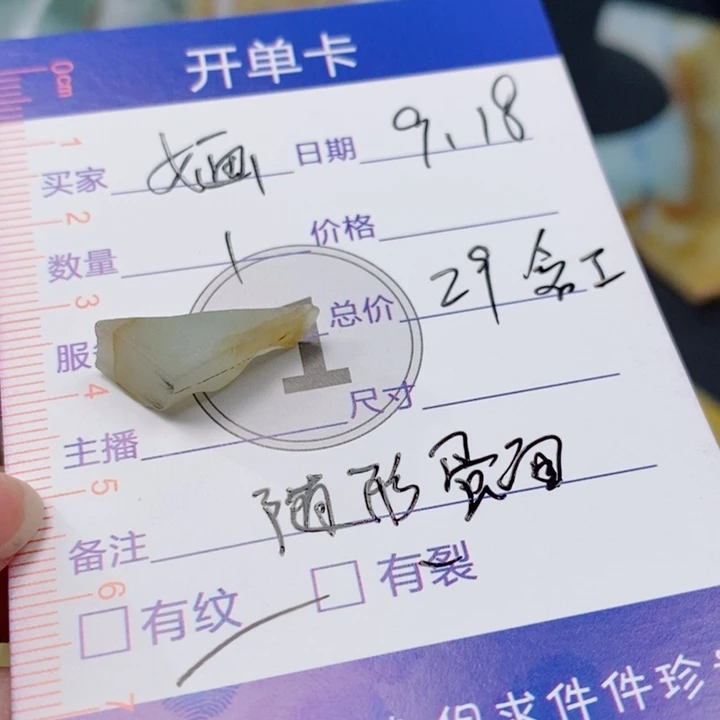 开单卡
0cm
买家 日期 9.18
1
2
数量 1 价格
3
服 1 总价 29 含工
4
尺寸
主播
5
备注 随形蛋面
6
有纹 有裂
7
求件件珍